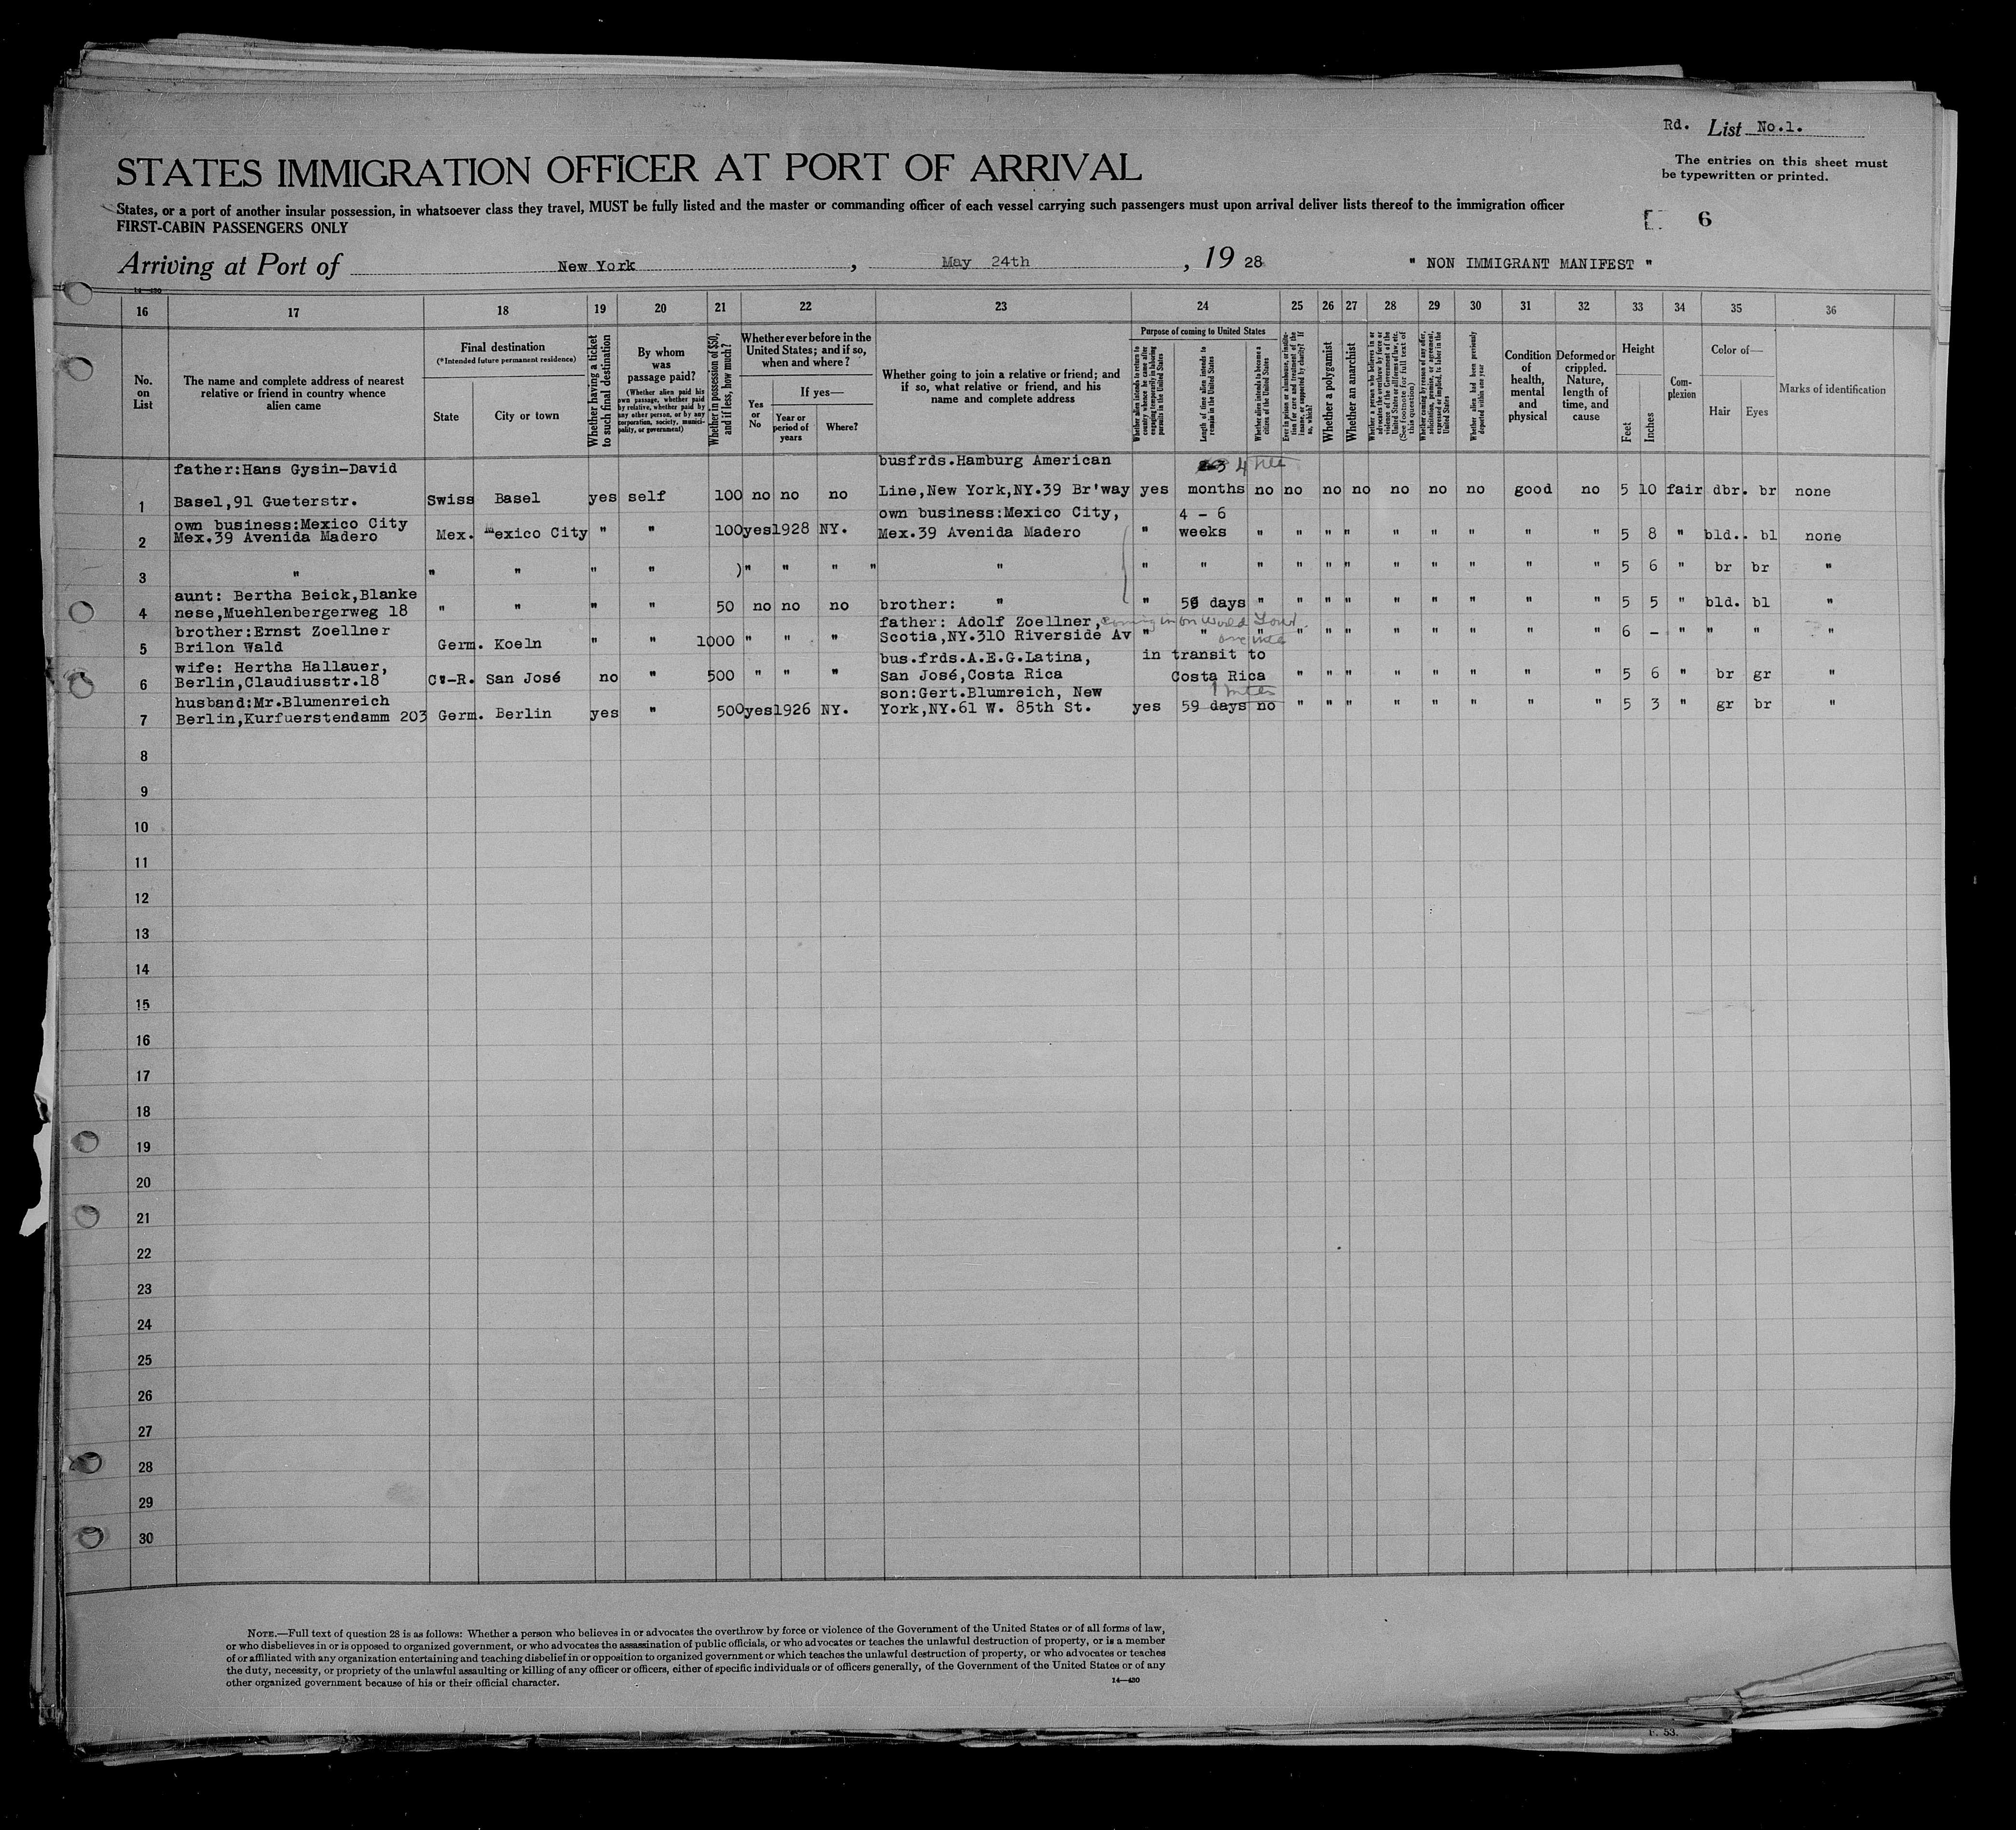 Rd. List No.1.
STATES IMMIGRATION OFFICER AT PORT OF ARRIVAL
The entries on this sheet must
be typewritten or printed.
States, or a port of another insular possession, in whatsoever class they travel, MUST be fully listed and the master or commanding officer of each vessel carrying such passengers must upon arrival deliver lists thereof to the immigration officer
FIRST-CABIN PASSENGERS ONLY
6
Arriving at Port of New York, May 24th, 19 28 " NON IMMIGRANT MANIFEST "
14—430
16 17 18 19 20 21 22 23 24 25 26 27 28 29 30 31 32 33 34 35 36
No. on List
The name and complete address of nearest relative or friend in country whence alien came
Final destination
(*Intended future permanent residence)
State
City or town
Whether having a ticket to such final destination
By whom was passage paid?
(Whether alien paid his own passage, whether paid by relative, whether paid by any other person, or by any corporation, society, municipality, or government)
Whether in possession of $50, and if less, how much?
Whether ever before in the United States; and if so, when and where?
Yes or No
If yes—
Year or period of years
Where?
Whether going to join a relative or friend; and if so, what relative or friend, and his name and complete address
Purpose of coming to United States
Whether alien intends to return to country whence he came after engaging temporarily in laboring pursuits in the United States
Length of time alien intends to remain in the United States
Whether alien intends to become a citizen of the United States
Ever in prison or almshouse, or institution for care and treatment of the insane, or supported by charity? If so, which?
Whether a polygamist
Whether an anarchist
Whether a person who believes in or advocates the overthrow by force or violence of the Government of the United States or all forms of law, etc. (See footnote for full text of this question)
Whether coming by reason of any offer, solicitation, promise, or agreement, expressed or implied, to labor in the United States
Whether alien had been previously deported within one year
Condition of health, mental and physical
Deformed or crippled. Nature, length of time, and cause
Height
Feet
Inches
Complexion
Color of—
Hair
Eyes
Marks of identification
father:Hans Gysin-David busfrds.Hamburg American 4
1 Basel,91 Gueterstr. Swiss Basel yes self 100 no no no Line,New York,NY.39 Br'way yes months no no no no no no no good no 5 10 fair dbr. br none
own business:Mexico City own business:Mexico City, 4 - 6
2 Mex.39 Avenida Madero Mex. Mexico City " " 100 yes 1928 NY. Mex.39 Avenida Madero " weeks " " " " " " " " " 5 8 " bld.. bl none
3 " " " " " )" " " " " " " " " " " " " " " " 5 6 " br br "
aunt: Bertha Beick,Blanke
4 nese,Muehlenbergerweg 18 " " " " 50 no no no brother: " " 59 days " " " " " " " " " 5 5 " bld. bl "
brother:Ernst Zoellner father: Adolf Zoellner, coming in on World Tour.
5 Brilon Wald Germ. Koeln " " 1000 " " " Scotia,NY.310 Riverside Av " " " " " " " " " " " 6 - " " " "
wife: Hertha Hallauer, bus.frds.A.E.G.Latina, in transit to
6 Berlin,Claudiusstr.18 C"-R. San José no " 500 " " " San José,Costa Rica Costa Rica " " " " " " " " 5 6 " br gr "
husband:Mr.Blumenreich son:Gert.Blumreich, New
7 Berlin,Kurfuerstendamm 203 Germ. Berlin yes " 500 yes 1926 NY. York,NY.61 W. 85th St. yes 59 days no " " " " " " " " 5 3 " gr br "
8
9
10
11
12
13
14
15
16
17
18
19
20
21
22
23
24
25
26
27
28
29
30
NOTE.—Full text of question 28 is as follows: Whether a person who believes in or advocates the overthrow by force or violence of the Government of the United States or of all forms of law,
or who disbelieves in or is opposed to organized government, or who advocates the assassination of public officials, or who advocates or teaches the unlawful destruction of property, or is a member
of or affiliated with any organization entertaining and teaching disbelief in or opposition to organized government or which teaches the unlawful destruction of property, or who advocates or teaches
the duty, necessity, or propriety of the unlawful assaulting or killing of any officer or officers, either of specific individuals or of officers generally, of the Government of the United States or of any
other organized government because of his or their official character.
14—430
F. 53.